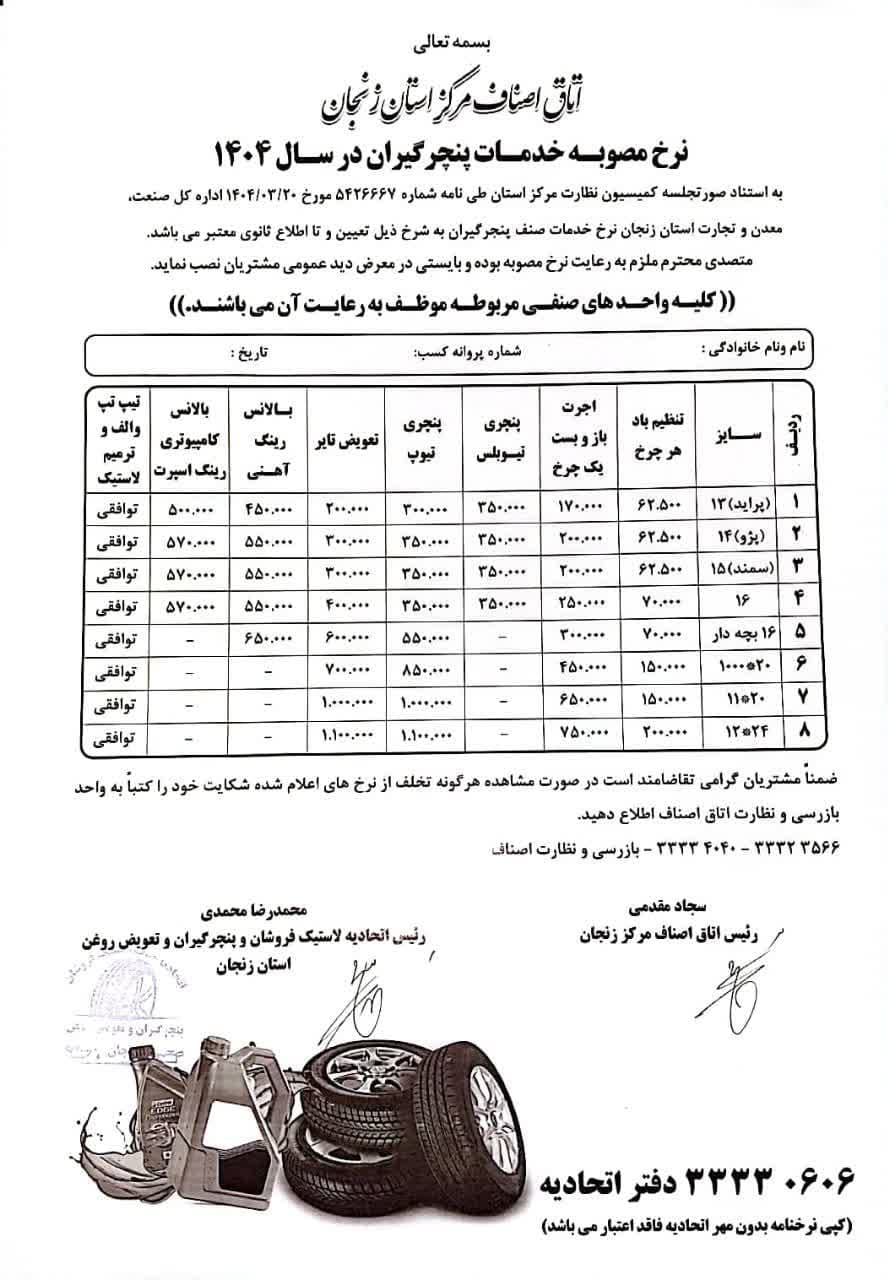 بسمه تعالی
اتاق اصناف مرکز استان زنجان
نرخ مصوبه خدمات پنچرگیران در سال ۱۴۰۴
به استناد صورتجلسه کمیسیون نظارت مرکز استان طی نامه شماره ۵۴۲۶۶۶۷ مورخ ۱۴۰۴/۰۳/۲۰ اداره کل صنعت،
معدن و تجارت استان زنجان نرخ خدمات صنف پنجرگیران به شرخ ذیل تعیین و تا اطلاع ثانوی معتبر می باشد.
متصدی محترم ملزم به رعایت نرخ مصوبه بوده و بایستی در معرض دید عمومی مشتریان نصب نماید.
((کلیه واحدهای صنفی مربوطه موظف به رعایت آن می باشند.))
نام ونام خانوادگی : شماره پروانه کسب: تاریخ :
ردیف سایز تنظیم باد هر چرخ اجرت باز و بست یک چرخ پنچری تیوبلس پنچری تیوپ تعویض تایر بالانس رینگ آهنی بالانس کامپیوتری رینگ اسپرت تیپ تپ والف و ترمیم لاستیک
۱ (پراید)۱۳ ۶۲.۵۰۰ ۱۷۰.۰۰۰ ۳۵۰.۰۰۰ ۳۰۰.۰۰۰ ۲۰۰.۰۰۰ ۴۵۰.۰۰۰ ۵۰۰.۰۰۰ توافقی
۲ (پژو)۱۴ ۶۲.۵۰۰ ۲۰۰.۰۰۰ ۳۵۰.۰۰۰ ۳۵۰.۰۰۰ ۳۰۰.۰۰۰ ۵۵۰.۰۰۰ ۵۷۰.۰۰۰ توافقی
۳ (سمند)۱۵ ۶۲.۵۰۰ ۲۰۰.۰۰۰ ۳۵۰.۰۰۰ ۳۵۰.۰۰۰ ۳۰۰.۰۰۰ ۵۵۰.۰۰۰ ۵۷۰.۰۰۰ توافقی
۴ ۱۶ ۷۰.۰۰۰ ۲۵۰.۰۰۰ ۳۵۰.۰۰۰ ۳۵۰.۰۰۰ ۴۰۰.۰۰۰ ۵۵۰.۰۰۰ ۵۷۰.۰۰۰ توافقی
۵ ۱۶ بچه دار ۷۰.۰۰۰ ۳۰۰.۰۰۰ – ۵۵۰.۰۰۰ ۶۰۰.۰۰۰ ۶۵۰.۰۰۰ – توافقی
۶ ۱۰۰۰*۲۰ ۱۵۰.۰۰۰ ۴۵۰.۰۰۰ – ۸۵۰.۰۰۰ ۷۰۰.۰۰۰ – – توافقی
۷ ۱۱*۲۰ ۱۵۰.۰۰۰ ۶۵۰.۰۰۰ – ۱.۰۰۰.۰۰۰ ۱.۰۰۰.۰۰۰ – – توافقی
۸ ۱۲*۲۴ ۲۰۰.۰۰۰ ۷۵۰.۰۰۰ – ۱.۱۰۰.۰۰۰ ۱.۱۰۰.۰۰۰ – – توافقی
ضمناً مشتریان گرامی تقاضامند است در صورت مشاهده هرگونه تخلف از نرخ های اعلام شده شکایت خود را کتباً به واحد
بازرسی و نظارت اتاق اصناف اطلاع دهید.
۳۳۳۲ ۳۵۶۶ – ۳۳۳۳ ۴۰۴۰ – بازرسی و نظارت اصناف
سجاد مقدمی
رئیس اتاق اصناف مرکز زنجان
محمدرضا محمدی
رئیس اتحادیه لاستیک فروشان و پنچرگیران و تعویض روغن
استان زنجان
EDGE
۳۳۳۳ ۰۶۰۶ دفتر اتحادیه
(کپی نرخنامه بدون مهر اتحادیه فاقد اعتبار می باشد)